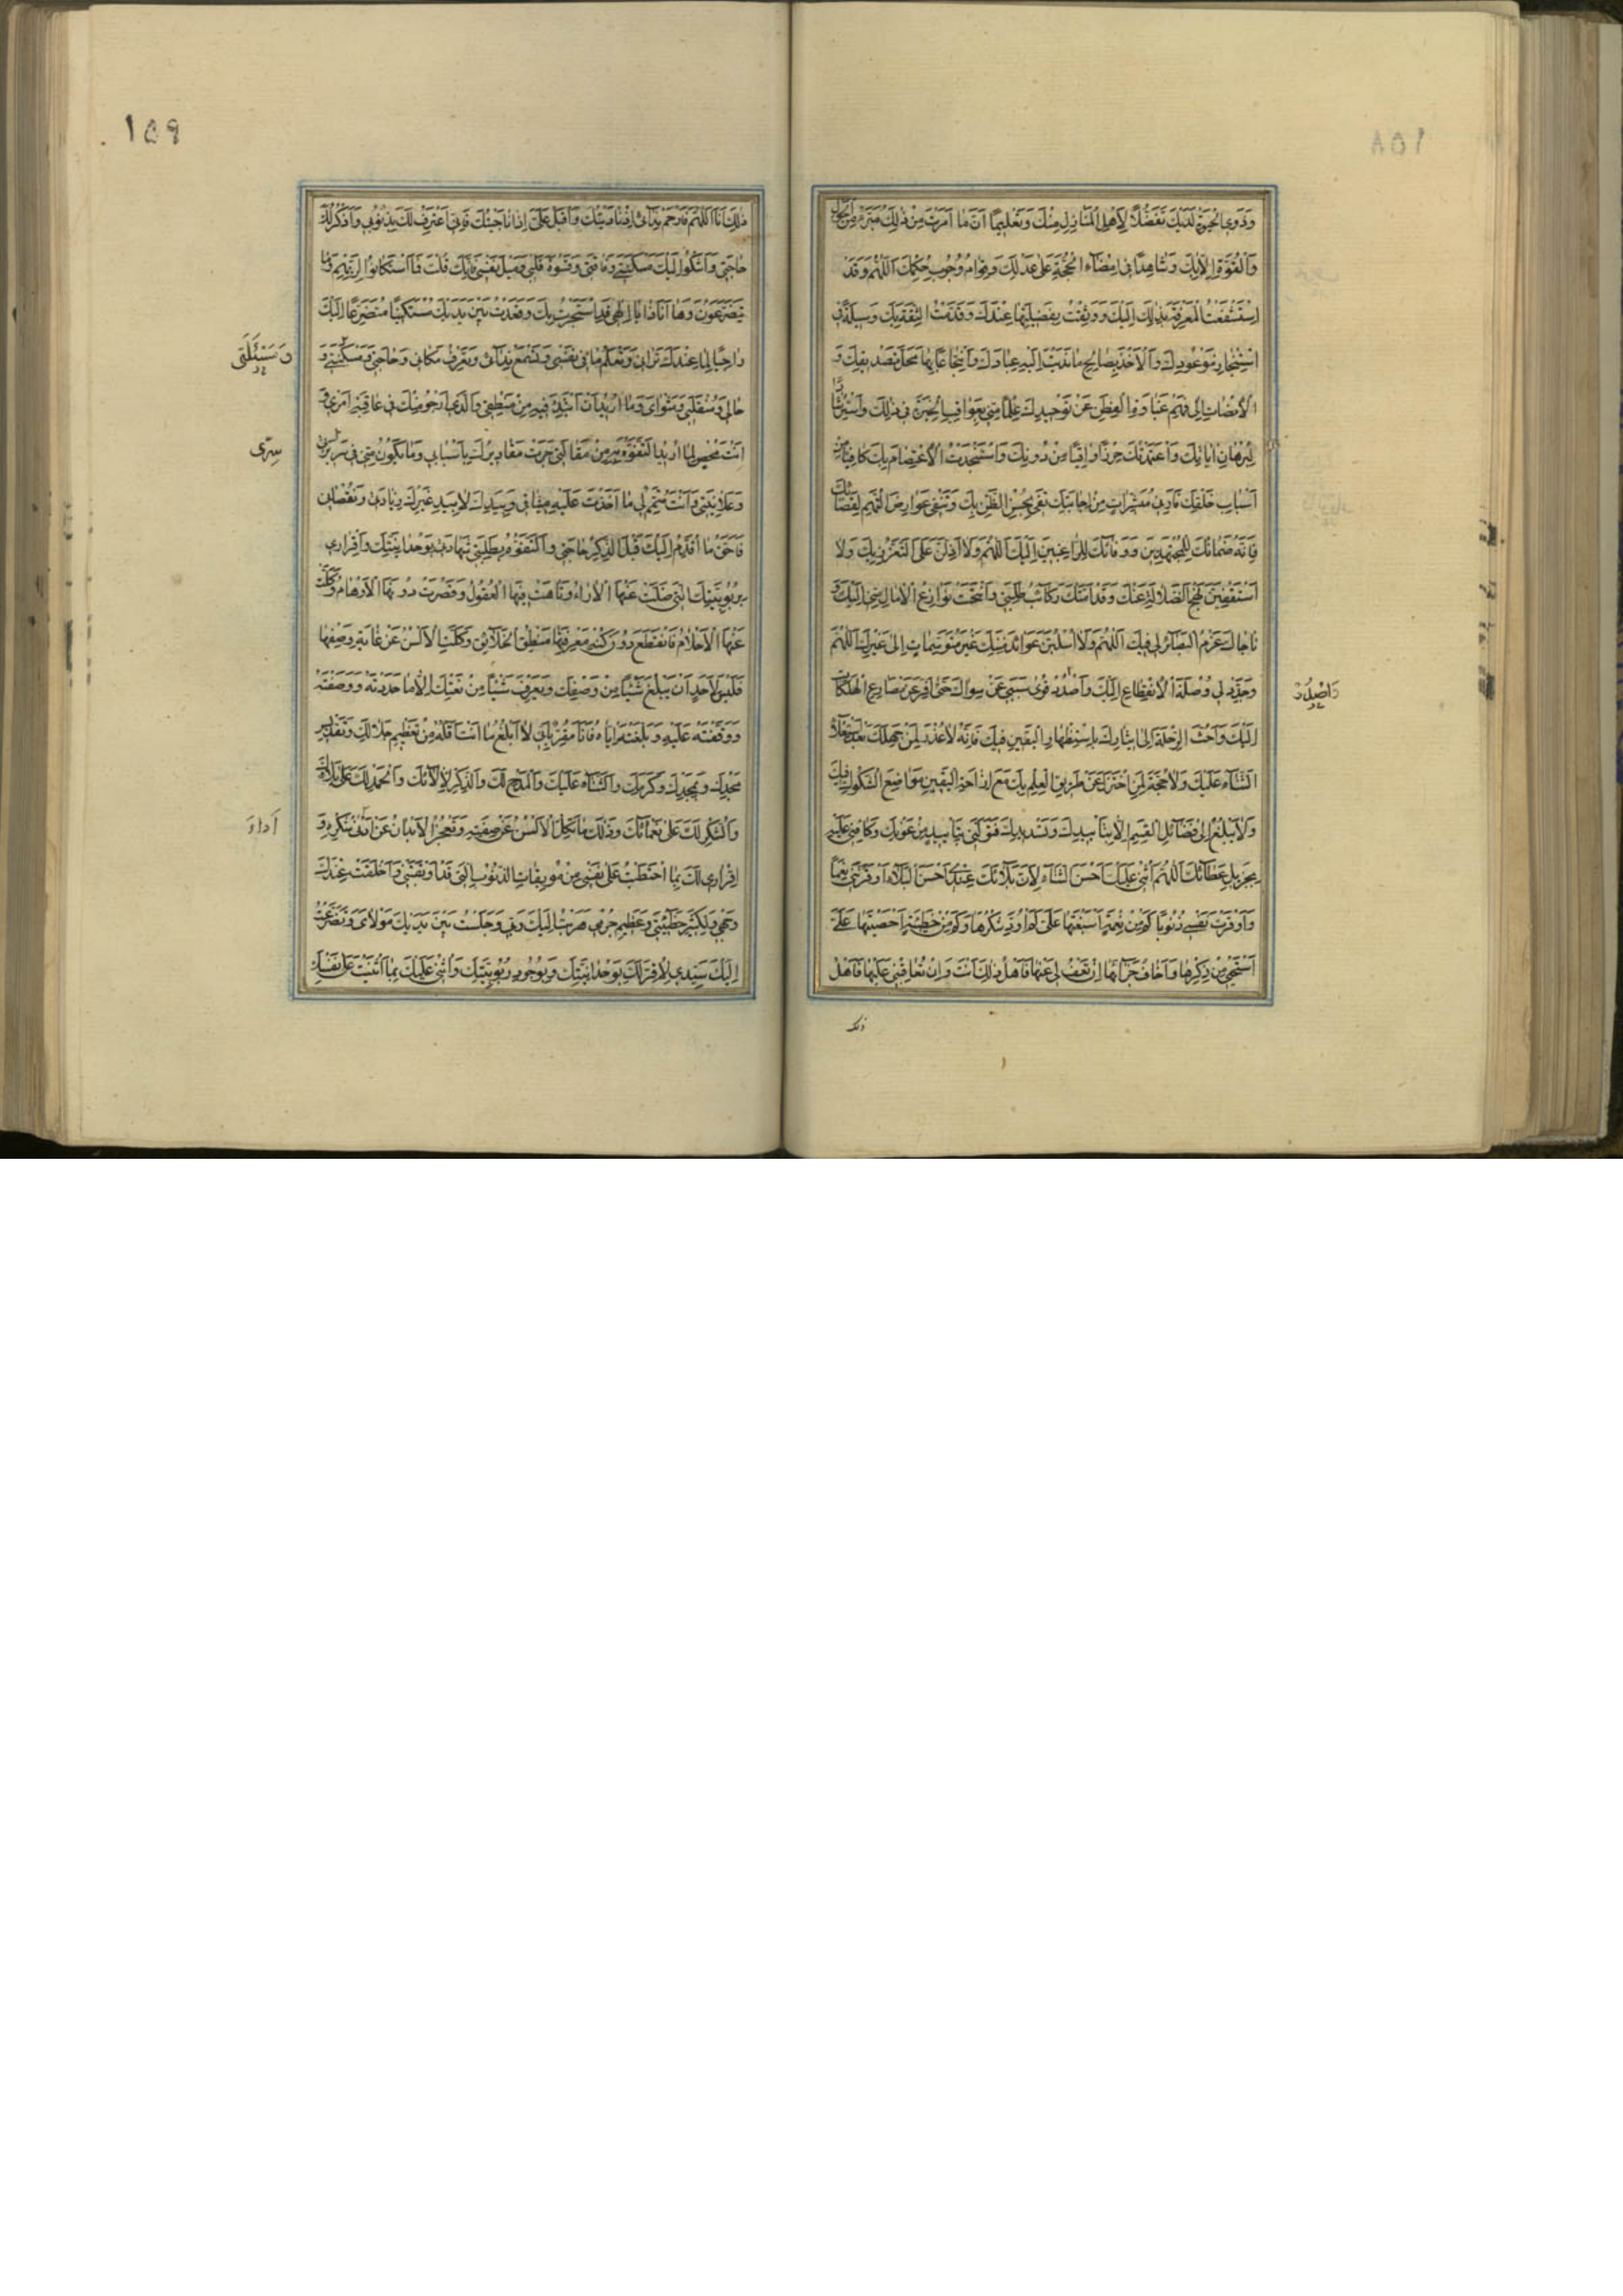 وَذَوِي الْحَبْوَةِ لَدَيْكَ تَفَضُّلًا لِأَهْلِ الْمَنَازِلِ مِنْكَ وَتَعْلِيمًا أَنَّ مَا أَمَرْتَ مِنْ ذٰلِكَ مُبَرَّءٌ مِنَ الْحَوْلِ
وَالْقُوَّةِ إِلَّا بِكَ وَشَاهِدًا فِي إِمْضَاءِ الْحُجَّةِ عَلَى عَدْلِكَ وَقِوَامِ وُجُوبِ حُكْمِكَ اَللّٰهُمَّ وَقَدِ
اسْتَشْفَعْتُ الْمَعْرِفَةَ بِذٰلِكَ إِلَيْكَ وَوَثِقْتُ بِفَضِيلَتِهَا عِنْدَكَ وَقَدَّمْتُ الثِّقَةَ بِكَ وَسِيلَةً فِي
اسْتِنْجَازِ مَوْعُودِكَ وَالْأَخْذِ بِصَالِحِ مَا نَدَبْتَ إِلَيْهِ عِبَادَكَ وَانْتِجَاعًا بِهَا مَحَلَّ تَصْدِيقِكَ وَ
الْإِنْصَاتِ إِلَى فَهْمِ غَبَاوَةِ الْفِطَنِ عَنْ تَوْحِيدِكَ عِلْمًا مِنِّي بِعَوَاقِبِ الْخِيَرَةِ فِي ذٰلِكَ وَاسْتِرْشَادًا
لِبُرْهَانِ آيَاتِكَ وَاعْتَمَدْتُكَ حِرْزًا وَاقِيًا مِنْ دُونِكَ وَاسْتَنْجَدْتُ الْاِعْتِصَامَ بِكَ كَافِيًا مِنْ
أَسْبَابِ خَلْقِكَ فَأَرِنِي مُبَشِّرَاتٍ مِنْ إِجَابَتِكَ تَفِي بِحُسْنِ الظَّنِّ بِكَ وَتَنْفِي عَوَارِضَ التُّهَمِ لِقَضَائِكَ
فَإِنَّهُ ضَمَانُكَ لِلْمُجْتَهِدِينَ وَوَفَاؤُكَ لِلرَّاغِبِينَ إِلَيْكَ اَللّٰهُمَّ وَلَا أَذِلَّنَّ عَلَى التَّعَزُّزِ بِكَ وَلَا
أَسْتَقْفِيَنَّ نَهْجَ الضَّلَالَةِ عَنْكَ وَقَدْ أَمَّتْكَ رَكَائِبُ طَلِبَتِي وَأُنِيخَتْ نَوَازِعُ الْآمَالِ مِنِّي إِلَيْكَ وَ
نَاجَاكَ عَزْمُ الْبَصَائِرِ لِي فِيكَ اَللّٰهُمَّ وَلَا أُسْلَبَنَّ عَوَائِدَ مِنَنِكَ غَيْرَ مُتَوَسِّمَاتٍ إِلَى غَيْرِكَ اَللّٰهُمَّ
وَجَدِّدْ لِي وُصْلَةَ الْاِنْقِطَاعِ إِلَيْكَ وَاصْدُدْ قُوَى سَبَبِي عَنْ سِوَاكَ حَتَّى أَفِرَّ عَنْ مَصَارِعِ الْهَلَكَاتِ
وَاصْدُدْ
إِلَيْكَ وَأَحُثَّ الرِّحْلَةَ إِلَى إِيثَارِكَ بِاسْتِظْهَارِ الْيَقِينِ فِيكَ فَإِنَّهُ لَا عُذْرَ لِمَنْ جَهِلَكَ بَعْدَ اسْتِعْلَاءِ
الثَّنَاءِ عَلَيْكَ وَلَا حُجَّةَ لِمَنِ اخْتَزَلَ عَنْ طَرِيقِ الْعِلْمِ بِكَ مَعَ إِزَاحَةِ الْيَقِينِ مَوَاضِعَ الشُّكُوكِ فِيكَ
وَلَا يُبْلَغُ إِلَى فَضَائِلِ الْقِسَمِ إِلَّا بِتَأْيِيدِكَ وَتَسْدِيدِكَ فَتَوَلَّنِي بِتَأْيِيدٍ مِنْ عَوْنِكَ وَكَافِنِي عَلَيْهِ
بِجَزِيلِ عَطَائِكَ اَللّٰهُمَّ أُثْنِي عَلَيْكَ أَحْسَنَ الثَّنَاءِ لِأَنَّ بَلَاءَكَ عِنْدِي أَحْسَنُ الْبَلَاءِ أَوْقَرْتَنِي نِعَمًا
وَأَوْقَرْتُ نَفْسِي ذُنُوبًا كَمْ مِنْ نِعْمَةٍ أَسْبَغْتَهَا عَلَيَّ لَمْ أُؤَدِّ شُكْرَهَا وَكَمْ مِنْ خَطِيئَةٍ أَحْصَيْتَهَا عَلَيَّ
أَسْتَحْيِي مِنْ ذِكْرِهَا وَأَخَافُ جَزَاءَهَا إِنْ تَعْفُ لِي عَنْهَا فَأَهْلُ ذٰلِكَ أَنْتَ وَإِنْ تُعَاقِبْنِي عَلَيْهَا فَأَهْلُ
ذلك
١٥٩
ذٰلِكَ أَنَا اَللّٰهُمَّ فَارْحَمْ نِدَائِي إِذَا نَادَيْتُكَ وَأَقْبِلْ عَلَيَّ إِذَا نَاجَيْتُكَ فَإِنِّي أَعْتَرِفُ لَكَ بِذُنُوبِي وَأَذْكُرُ لَكَ
حَاجَتِي وَأَشْكُو إِلَيْكَ مَسْكَنَتِي وَفَاقَتِي وَقَسْوَةَ قَلْبِي وَمَيْلَ نَفْسِي فَإِنَّكَ قُلْتَ فَمَا اسْتَكَانُوا لِرَبِّهِمْ وَمَا
يَتَضَرَّعُونَ وَهَا أَنَا ذَا يَا إِلٰهِي قَدِ اسْتَجَرْتُ بِكَ وَقَعَدْتُ بَيْنَ يَدَيْكَ مُسْتَكِينًا مُتَضَرِّعًا إِلَيْكَ
رَاجِيًا لِمَا عِنْدَكَ تَرَانِي وَتَعْلَمُ مَا فِي نَفْسِي وَتَسْمَعُ نِدَائِي وَتَعْرِفُ مَكَانِي وَحَاجَتِي وَمَسْكَنَتِي وَ
وَمَسْئَلَتِي
حَالِي وَمُنْقَلَبِي وَمَثْوَايَ وَمَا أُرِيدُ أَنْ أَبْتَدِئَ فِيهِ مِنْ مَنْطِقِي وَالَّذِي أَرْجُو مِنْكَ فِي عَاقِبَةِ أَمْرِي وَ
أَنْتَ مُحْصٍ لِمَا أُرِيدُ التَّفَوُّهَ بِهِ مِنْ مَقَالَتِي جَرَتْ مَقَادِيرُكَ بِأَسْبَابِي وَمَا يَكُونُ مِنِّي فِي سَرِيرَتِي
سِرّي
وَعَلَانِيَتِي وَأَنْتَ مُتِمٌّ لِي مَا أَخَذْتَ عَلَيْهِ مِيثَاقِي وَبِيَدِكَ لَا بِيَدِ غَيْرِكَ زِيَادَتِي وَنُقْصَانِي
فَأَحَقُّ مَا أُقَدِّمُ إِلَيْكَ قَبْلَ الذِّكْرِ لِحَاجَتِي وَالتَّفَوُّهِ بِطَلِبَتِي شَهَادَتِي بِوَحْدَانِيَّتِكَ وَإِقْرَارِي
بِرُبُوبِيَّتِكَ الَّتِي ضَلَّتْ عَنْهَا الْآرَاءُ وَتَاهَتْ فِيهَا الْعُقُولُ وَقَصُرَتْ دُونَهَا الْأَوْهَامُ وَكَلَّتْ
عَنْهَا الْأَحْلَامُ فَانْقَطَعَ دُونَ كُنْهِ مَعْرِفَتِهَا مَنْطِقُ الْخَلَائِقِ وَكَلَّتِ الْأَلْسُنُ عَنْ غَايَةِ وَصْفِهَا
فَلَيْسَ لِأَحَدٍ أَنْ يَبْلُغَ شَيْئًا مِنْ وَصْفِكَ وَيَعْرِفَ شَيْئًا مِنْ نَعْتِكَ إِلَّا مَا حَدَّدْتَهُ وَوَصَفْتَهُ
وَوَقَفْتَهُ عَلَيْهِ وَبَلَّغْتَهُ إِيَّاهُ فَأَنَا مُقِرٌّ بِأَنِّي لَا أَبْلُغُ مَا أَنْتَ أَهْلُهُ مِنْ تَعْظِيمِ جَلَالِكَ وَتَقْدِيسِ
مَجْدِكَ وَتَمْجِيدِكَ وَكَرَمِكَ وَالثَّنَاءِ عَلَيْكَ وَالْمَدْحِ لَكَ وَالذِّكْرِ لِآلَائِكَ وَالْحَمْدِ لَكَ عَلَى بَلَائِكَ
وَالشُّكْرِ لَكَ عَلَى نَعْمَائِكَ وَذٰلِكَ مَا تَكِلُّ الْأَلْسُنُ عَنْ صِفَتِهِ وَتَعْجِزُ الْأَبْدَانُ عَنْ أَدْنَى شُكْرِهِ وَ
أداء
إِقْرَارِي لَكَ بِمَا احْتَطَبْتُ عَلَى نَفْسِي مِنْ مُوبِقَاتِ الذُّنُوبِ الَّتِي قَدْ أَوْبَقَتْنِي وَأَخْلَقَتْ عِنْدَكَ
وَجْهِي وَلِكَبِيرِ خَطِيئَتِي وَعَظِيمِ جُرْمِي هَرَبْتُ إِلَيْكَ رَبِّي وَجَلَسْتُ بَيْنَ يَدَيْكَ مَوْلَايَ وَتَضَرَّعْتُ
إِلَيْكَ سَيِّدِي لِأُقِرَّ لَكَ بِوَحْدَانِيَّتِكَ وَبِوُجُودِ رُبُوبِيَّتِكَ وَأُثْنِي عَلَيْكَ بِمَا أَثْنَيْتَ عَلَى نَفْسِكَ